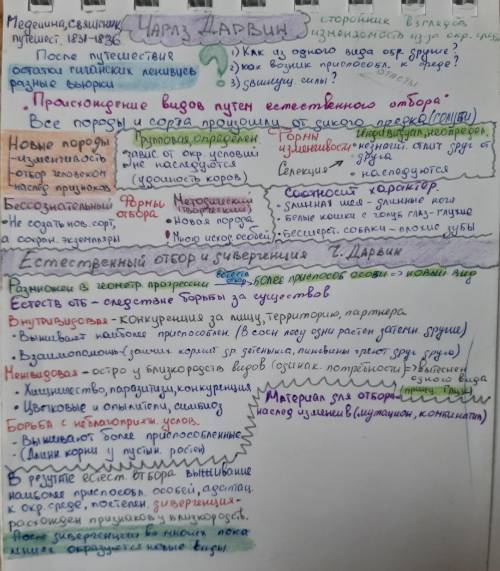 Медецина, священик,
путешест. 1831-1836
Чарлз Дарвин
сторонник взглядов
изменяемость из-за окр. среды
После путешествия
остатки гиганских ленивцев
разные вьюрки
?
1) Как из одного вида обр. другие?
2) как возник приспособл. к среде?
3) движущ. силы?
ответы
"Происхождение видов путем естественного отбора"
Все породы и сорта произошли от дикого предка
Новые породы
-изменчивость
-отбор человеком
наслед признаков
Групповая, определен.
завис от окр. условий
не наследуются
(удойность коров)
Формы
изменчивости
Селекция
Индивидуал, неопредел.
незначит. отлич друг от
друга
наследуются
Бессознательный
• Не создать нов. сорт,
а сохран. экземпляры
Формы
отбора
Методический
(творческий)
• Новая порода
• Много исход. особей
Соотносит характер.
- длинная шея - длинные ноги
- белые кошки с голуб глаз - глухие
- бесшерст. собаки - плохие зубы
Естественный отбор и дивергенция Ч. Дарвин
Размножен в геометр. прогрессии
естеств
отбор
более приспособ особи => новый вид
Естеств отб - следствие борьбы за существов
Внутривидовая - конкуренция за пищу, территорию, партнера
• Выживают наиболее приспособлен. (В сосн лесу одни растен затенен другие)
• Взаимопомощь- кормят др детеныша, пингвины греют друг друга)
Межвидовая - остро у близкородств видов (одинак. потребности) => вытеснен
одного вида
• Хищничество, паразитизм, конкуренция
• Цветковые и опылители, симбиоз
Борьба с неблагоприятн. услов.
- Выживают более приспособленные
- (Длинн корни у пустын. растен)
Материал для отбора-
наслед изменчив (мутацион, комбинатив)
В результе естест. отбора выживание
наиболее приспособл. особей, адаптац.
к окр. среде, постепен. дивергенция-
расхожден признаков у близкородств.
После дивергенции во многих поко
лениях образуются новые виды